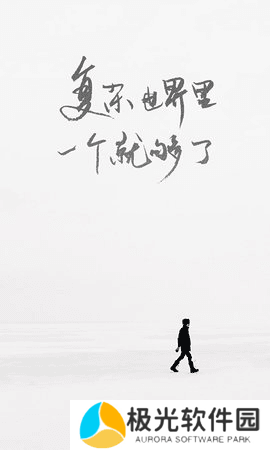 复杂世界里
一个就够了
极光软件园
AURORA SOFTWARE PARK